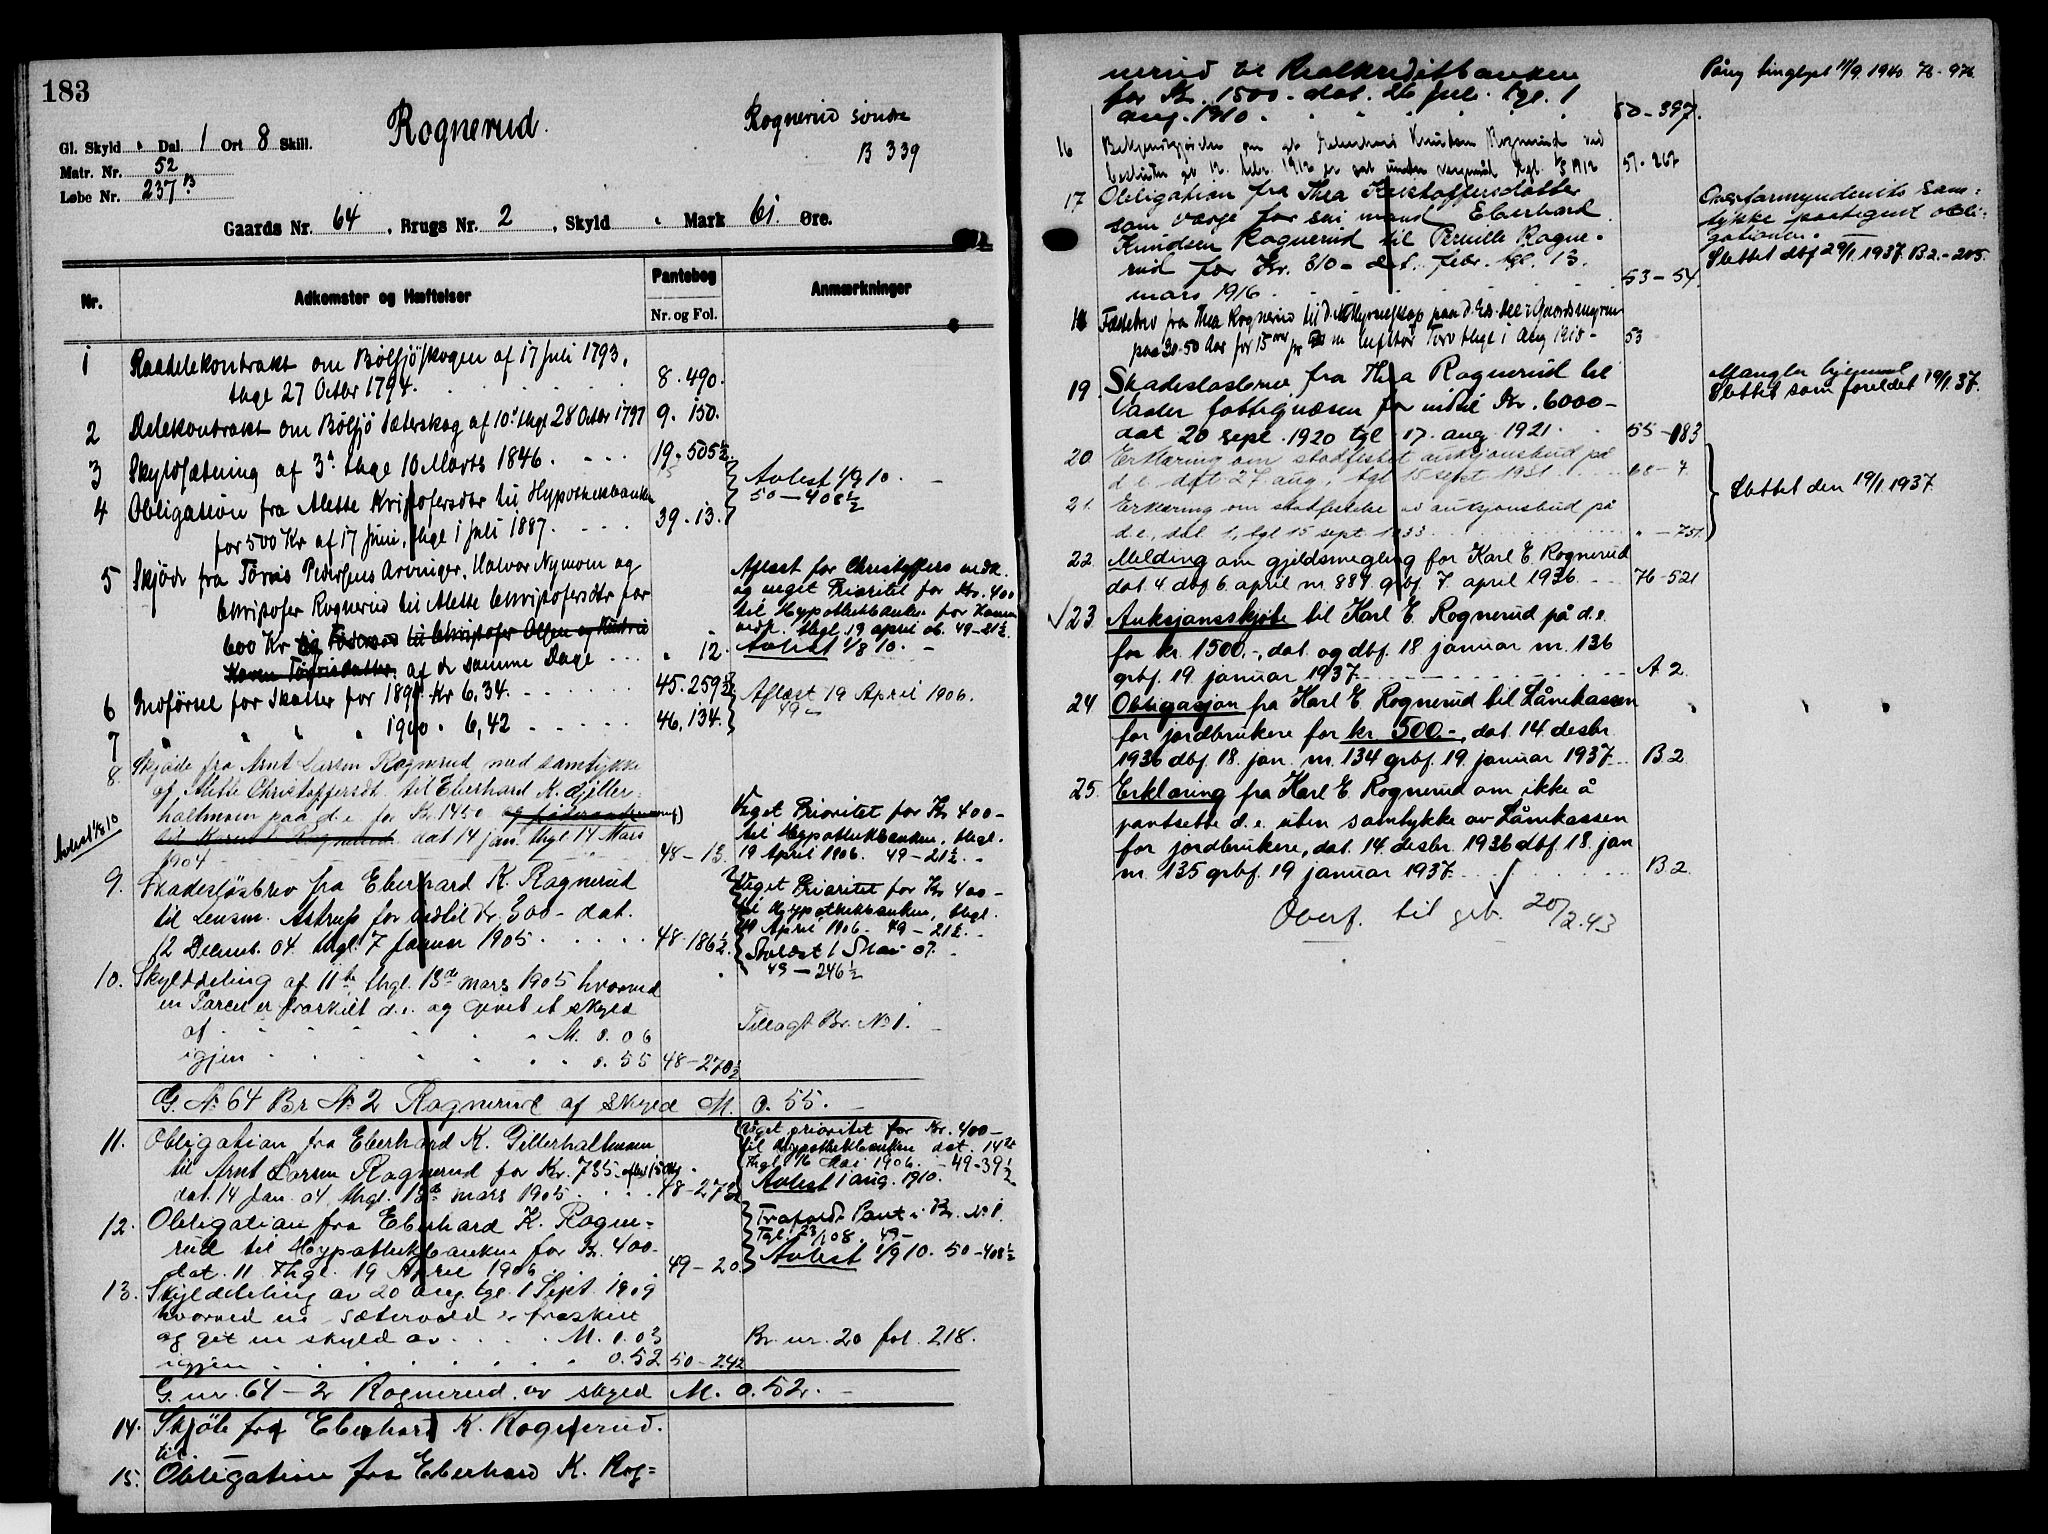 183
Rognerud.
Rognerud søndre
B 339
Gl. Skyld " Dal. 1 Ort 8 Skill.
Matr. Nr. 52
Løbe Nr. 237 B
Gaards Nr. 64, Brugs Nr. 2, Skyld " Mark 61 Øre.
Nr. Adkomster og Hæftelser Pantebog Nr. og Fol. Anmærkninger
1 Raadelekontrakt om Bølsjøskogen af 17 Juli 1793,
thgl 27 Octbr 1794. 8. 490.
2 Delekontrakt om Bølsjø Sæterskog af 10d thgl 28 Octbr 1797 9. 150.
3 Skyldsætning af 3d thgl 10 Marts 1846. 19. 505½.
4 Obligation fra Alette Kristofersdtr til Hypothekbanken
for 500 Kr af 17 Juni, thgl 1 Juli 1887. 39. 13.
Avlest 1/9 10.
50-408½
5 Skjøde fra Pedersens Arvinger, Halvor Nymoen og
Christofer Rognerud til Alette Christofersdtr for
600 Kr og til Christofer Olsen og
Karen af de samme Dage " 12.
Aflæst for Christoffers vedk.
og veget Prioritet for Kr. 400
til Hypothekbanken for Karens
vedk. thgl. 19 april 06. 49-21½.
Avlest 1/8 10.
6 Indførsel for Skatter for 1899 Kr 6.34. 45. 259½
7 " " " " 1900 " 6,42 46. 134.
Aflæst 19 April 1906.
49-
8. Skjøde fra Arnt Larsen Rognerud med samtykke
af Alette Christoffersdt. til Eberhard K. Gjiller-
haltmoen paa d.e. for Kr. 1450 og føderaad
til Karen Rognerud dat 14 jan. thgl 14 Mars
1904 48-13.
Avlest 1/8 10
Veget Prioritet for Kr 400-
til Hypothekbanken, thgl.
19 April 1906. 49-21½.
9. Skadesløsbrev fra Eberhard K. Rognerud
til Lensm. Astrup for indtil Kr. 300- dat.
12 Decemb. 04 thgl. 7 Januar 1905 48-186½.
Veget Prioritet for Kr 400-
til Hypothekbanken, thgl.
19 April 1906. 49-21½.
Avlæst 1 Mai 07.
49-246½
10. Skylddeling af 11te thgl. 13de mars 1905 hvorved
en Parcel er fraskilt d.e. og givet et skyld
af M. 0.06
igjen 0.55 48-270½
Tillagt Br. No 1.
G. No 64 Br No 2 Rognerud af skyld M. 0.55.
11. Obligation fra Eberhard K. Gillerhaltmoen
til Arnt Larsen Rognerud for Kr. 735
dat. 14 Jan. 04 thgl. 13de mars 1905 48-273
Veget prioritet for Kr. 400-
til Hypothekbanken dat. 14de
thgl. 16 Mai 1906. 49-39½
Avlest 1 aug. 1910.
12. Obligation fra Eberhard K. Rogne-
rud til Hypothekbanken for Kr. 400-
dat. 11 Thgl. 19 April 1906 49-20.
Frafaldt Pant i Br. No 1.
Tgl. 23/1 08. 49-
Avlest 1/9 10. 50-408½
13. Skylddeling av 20 aug. tgl. 1 Sept. 1909
hvorved en sætervold er fraskilt
og git en skyld av M. 0.03
igjen 0.52 50-242
Br. nr. 20 fol. 218.
G. nr. 64-2 Rognerud av skyld M. 0.52.
14. Skjøte fra Eberhard K. Rognerud.
til
15. Obligation fra Eberhard K. Rog-
nerud til Realkreditbanken
for Kr. 1500- dat. 26 juli tgl. 1
aug. 1910. 50-397.
Påny tinglyst 11/9. 1940. 76-976
16 Bekjendtgjørelse om at Eberhard Knutsen Rognerud ved
beslutn. av 12. febr. 1912 er sat under vergemål tgl. 1/3 1912 51-267
17 Obligation fra Thea Kristoffersdatter
som værge for sin mand Eberhard
Knudsen Rognerud til Pernille Rogne-
rud for Kr. 310- dat. febr. tgl. 13.
mars 1916. 53-54.
Overformynderiets sam-
tykke paategnet obli-
gationen.
Slettet dbf 29/1 1937. B2.-205.
18 Fæstebrev fra Thea Rognerud til paa d. Es. del i
paa 30-50 Aar for 15 øre pr m lufttør Torv thgl 1 Aug 1918- 53
19. Skadesløsbrev fra Thea Rognerud til
Vaaler fattigvæsen for indtil Kr. 6000-
dat 20 sept. 1920 tgl 17. aug 1921. 55-183
Mangler hjemmel
Slettet som foreldet 19/1. 37.
20. Erklæring om stadfestet auksjonsbud på
d.e. dat 27 aug, tgl 15 sept 1931. 68-7
21. Erklæring om stadfestelse av auksjonsbud på
d.e, dat 1, tgl 15 sept 1933 " - 751.
Slettet den 19/1 1937
22. Melding om gjeldsmegling for Karl E. Rognerud
dat. 4. dbf 6. april nr. 889 grbf. 7. april 1936. 76-521
√23 Auksjonsskjøte til Karl E. Rognerud på d.e.
for kr. 1500.-, dat. og dbf. 18 januar nr. 136
grbf. 19. januar 1937 A 2.
24 Obligasjon fra Karl E. Rognerud til Lånekassen
for jordbrukere for kr. 500.-, dat. 14 desbr.
1936 dbf. 18. jan. nr. 134 grbf. 19. januar 1937. B.2
25. Erklæring fra Karl E. Rognerud om ikke å
pantsette d.e. uten samtykke av Lånekassen
for jordbrukere, dat. 14. desbr. 1936 dbf. 18. jan
nr. 135 grbf. 19 januar 1937. B.2.
Overf. til grb. 20/2.43